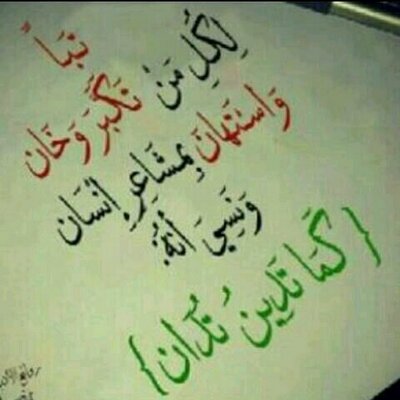 تباً
لِكُلِ مَنْ تَكَبَّرَ وَخَان
وَاسْتَهانَ بِمَشَاعِرِ إنْسَان
وَنَسِيَ أنَهُ
{كَمَا تَدِين تُدَان}